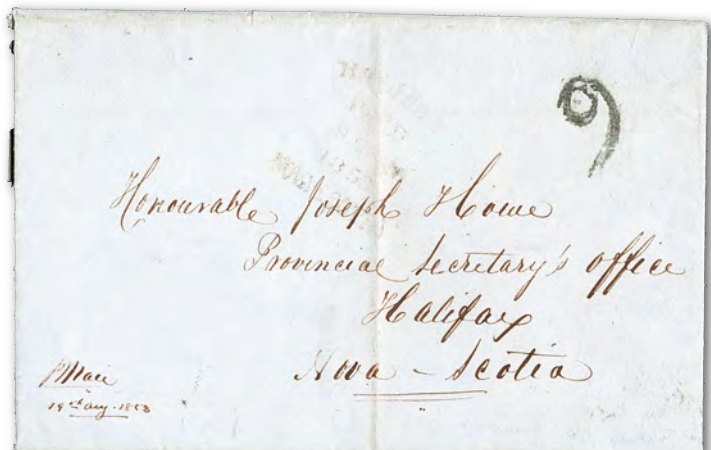 9
Honourable Joseph Howe
Provincial Secretary's office
Halifax
Nova - Scotia
Aug. 1853